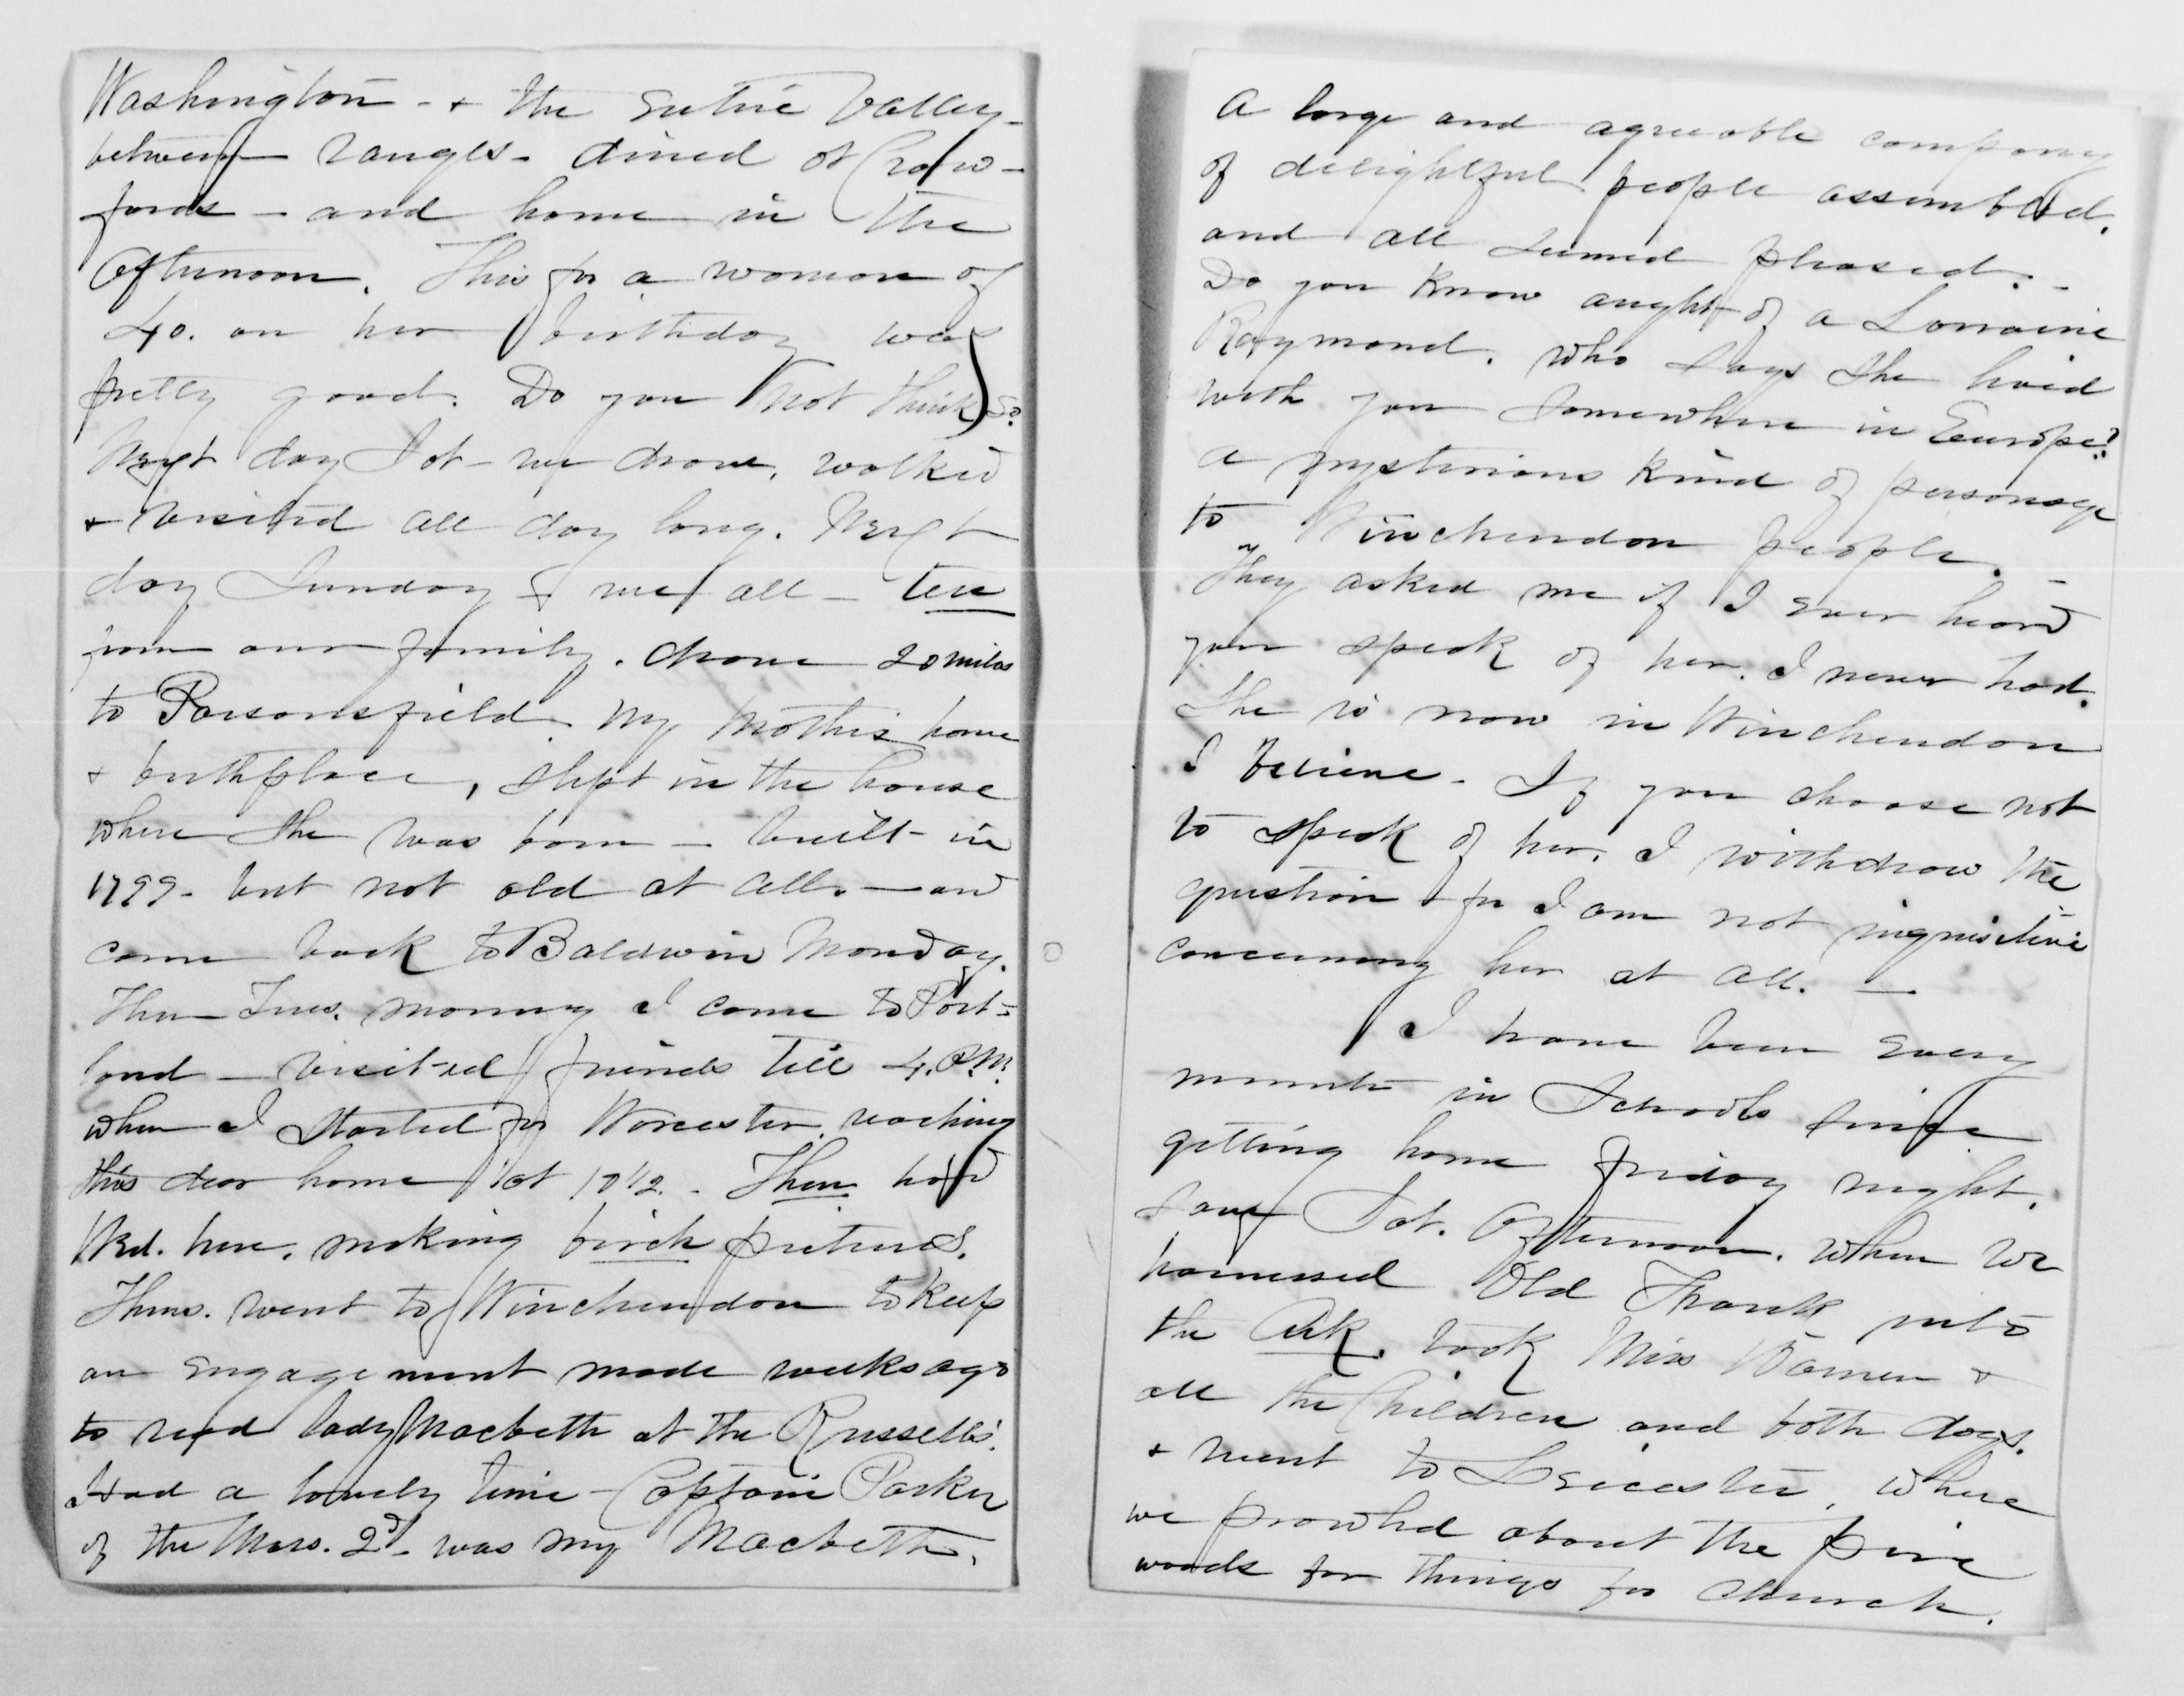 Washington - & the Entire Valley -
between ranges - dined at Craw -
fords - and home in the
Afternoon. This for a woman of
40. on her birthday was
pretty good. Do you not think so?
Next day Sat - we drove, walked
& visited all day long. Next
day Sunday we all - ten
from our family. drove 20 miles
to Parsonsfield. My Mother's home
& birthplace, slept in the house
where she was born - built in
1799 - but not old at all. - and
came back to Baldwin Monday.
Then Tues. morning I came to Port=
land - visited friends till 4. P.M.
when I started for Worcester, reaching
this dear home at 10 1/2. - Then had
Wed. here, making birch pictures.
Thurs. went to Winchendon to keep
an Engagement made weeks ago
to read Lady Macbeth at the Russells'.
Had a lovely time - Captain Parker
of the Mass. 2d - was my Macbeth.
A large and agreeable company
of delightful people assembled.
and all seemed pleased. -
Do you know aught of a Lorraine
Raymond. who says she lived
with you somewhere in Europe?
A mysterious kind of personage
to Winchendon people. -
They asked me if I ever heard
you speak of her. I never had.
She is now in Winchendon
I believe - If you choose not
to speak of her, I withdraw the
question for I am not inquisitive
concerning her at all. -
I have been Every
minute in Schools since
getting home Friday night.
save Sat. Afternoon. when we
harnessed Old Frank into
the Ark. took Miss &
all the Children and both dogs.
& went to Leicester, where
we prowled about the pine
woods for things for Church.